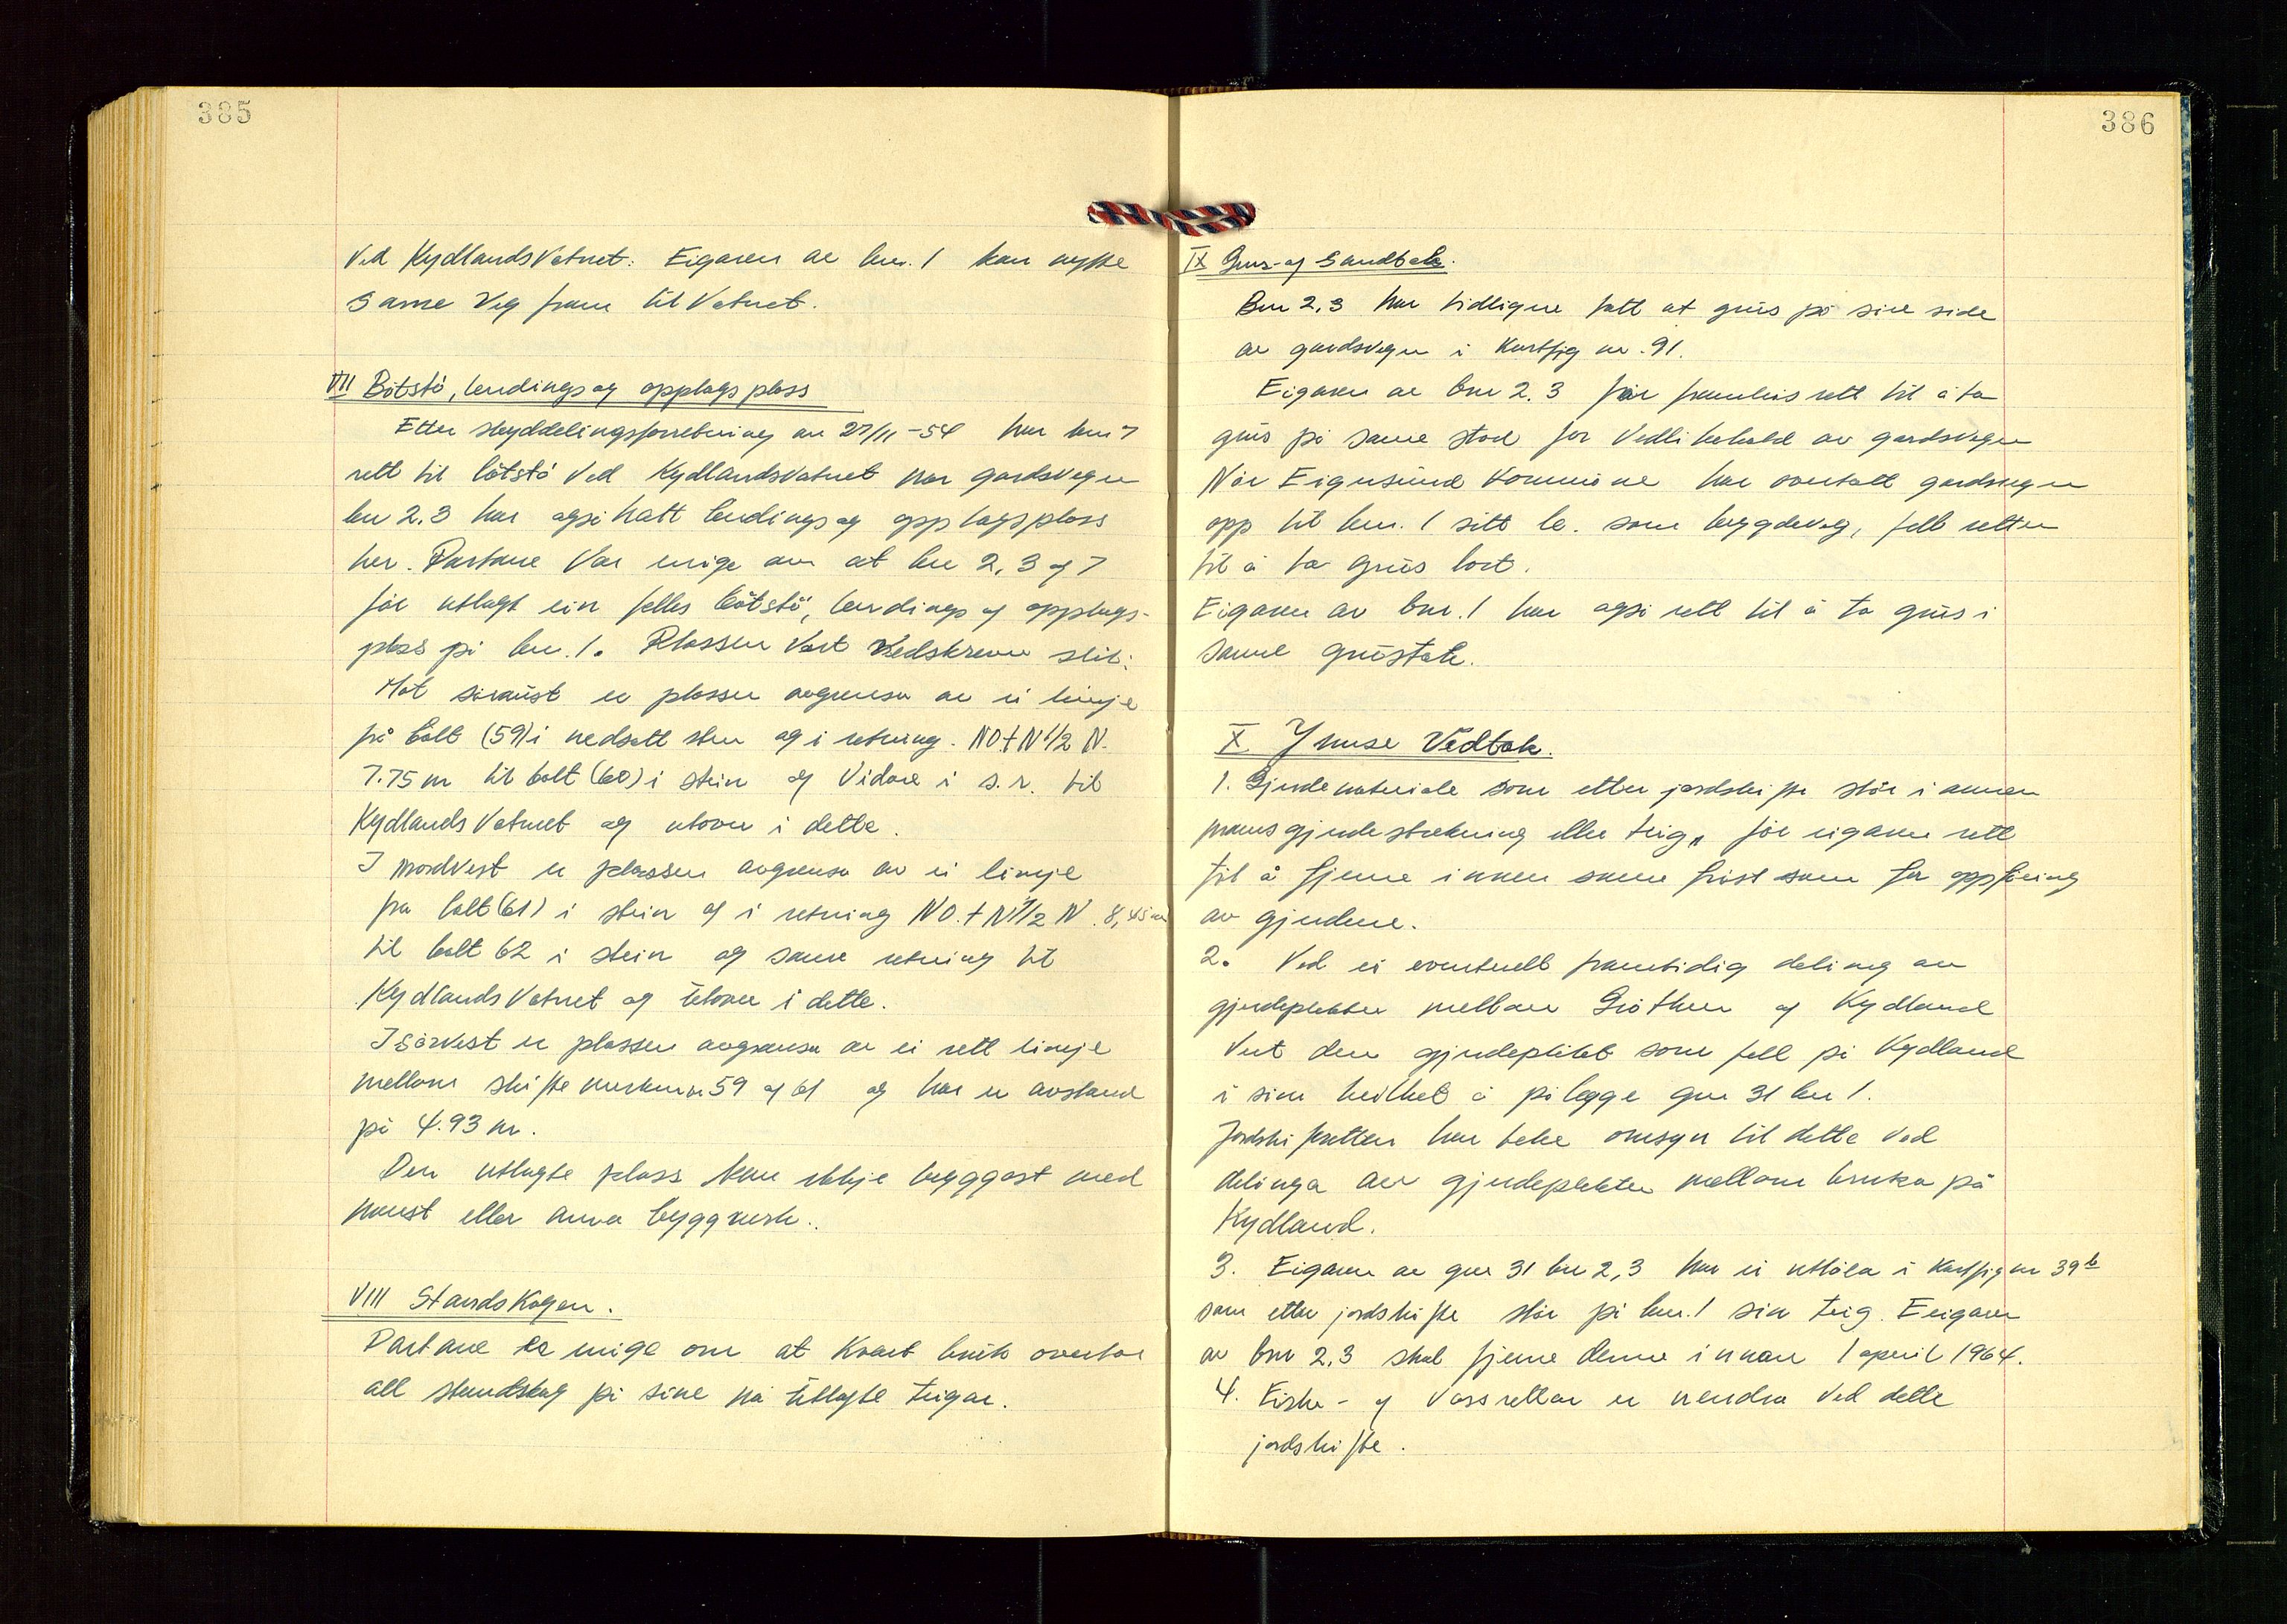 385
Ved Kydlandsvatnet: Eigaren av bnr. 1 kan nytte
same veg fram til vatnet.
VII Båtstø, lendings og opplags plass
Etter skyddelingsforretning av 27/11-54 har bnr 7
rett til båtstø ved Kydlandsvatnet nær gardsvegen
bnr 2.3 har også hatt lendings og opplagsplass
her. Partane var enige om at bnr 2, 3 og 7
får utlagt ein felles båtstø, lendings og opplags-
plass på bnr. 1. Plassen vart nedskreven slik:
Mot søraust er plassen avgrensa av ei linje
frå bolt (59) i nedsatt sten og i retning. NO+N 1/2 N.
7.75 m til bolt (60) i stein og vidare i s.r. til
Kydlandsvatnet og utover i dette.
I nordvest er plassen avgrensa av ei linje
fra bolt (61) i stein og i retning NO.+N 1/2 N. 8,45 m
til bolt 62 i stein og same retning til
Kydlandsvatnet og utover i dette.
I sørvest er plassen avgrensa av ei rett linje
mellom skiftemerkene 59 og 61 og har en avstand
på 4.93 m.
Den utlagte plass kan ikkje byggast med
naust eller anna byggverk.
VIII Standskogen.
Partane er enige om at kvart bruk overtar
all standskog på sine nå utlagte teigar.
386
IX Grus- og Sandtak.
Bnr 2.3 har tidligere tatt ut grus på sire side
av gardsvegen i kartfig nr. 91.
Eigaren av bnr 2.3 får framleis rett til å ta
grus på same stad for vedlikehold av gardsvegen
Når Eigersund kommune har overtatt gardsvegen
opp til bnr. 1 sitt to. som bygdeveg, fell retten
til å ta grus bort.
Eigaren av bnr. 1 har også rett til å ta grus i
same grustak.
X Ymse Vedtak.
1. Gjerdemateriale som etter jordskifte står i annen
manns gjerdestrekning eller teig, får eigaren rett
til å fjerne innen same frist som for oppføring
av gjerdene.
2. Ved ei eventuell framtidig deling av
gjerdeplikten mellom Grøthem og Kydland
vert den gjerdeplikt som fell på Kydland
i sin heilhet å pålegge gnr 31 bnr 1.
Jordskifteretten har teke omsyn til dette ved
delinga av gjerdeplikten mellom bruka på
Kydland.
3. Eigaren av gnr 31 bnr 2,3 har ei utløa i kartfig nr 39 b
som etter jordskifte står på bnr. 1 sin teig. Eigaren
av bnr 2.3 skal fjerne denne innan 1 april 1964.
4. Fiske- og vassrettar er uendra ved dette
jordskifte.